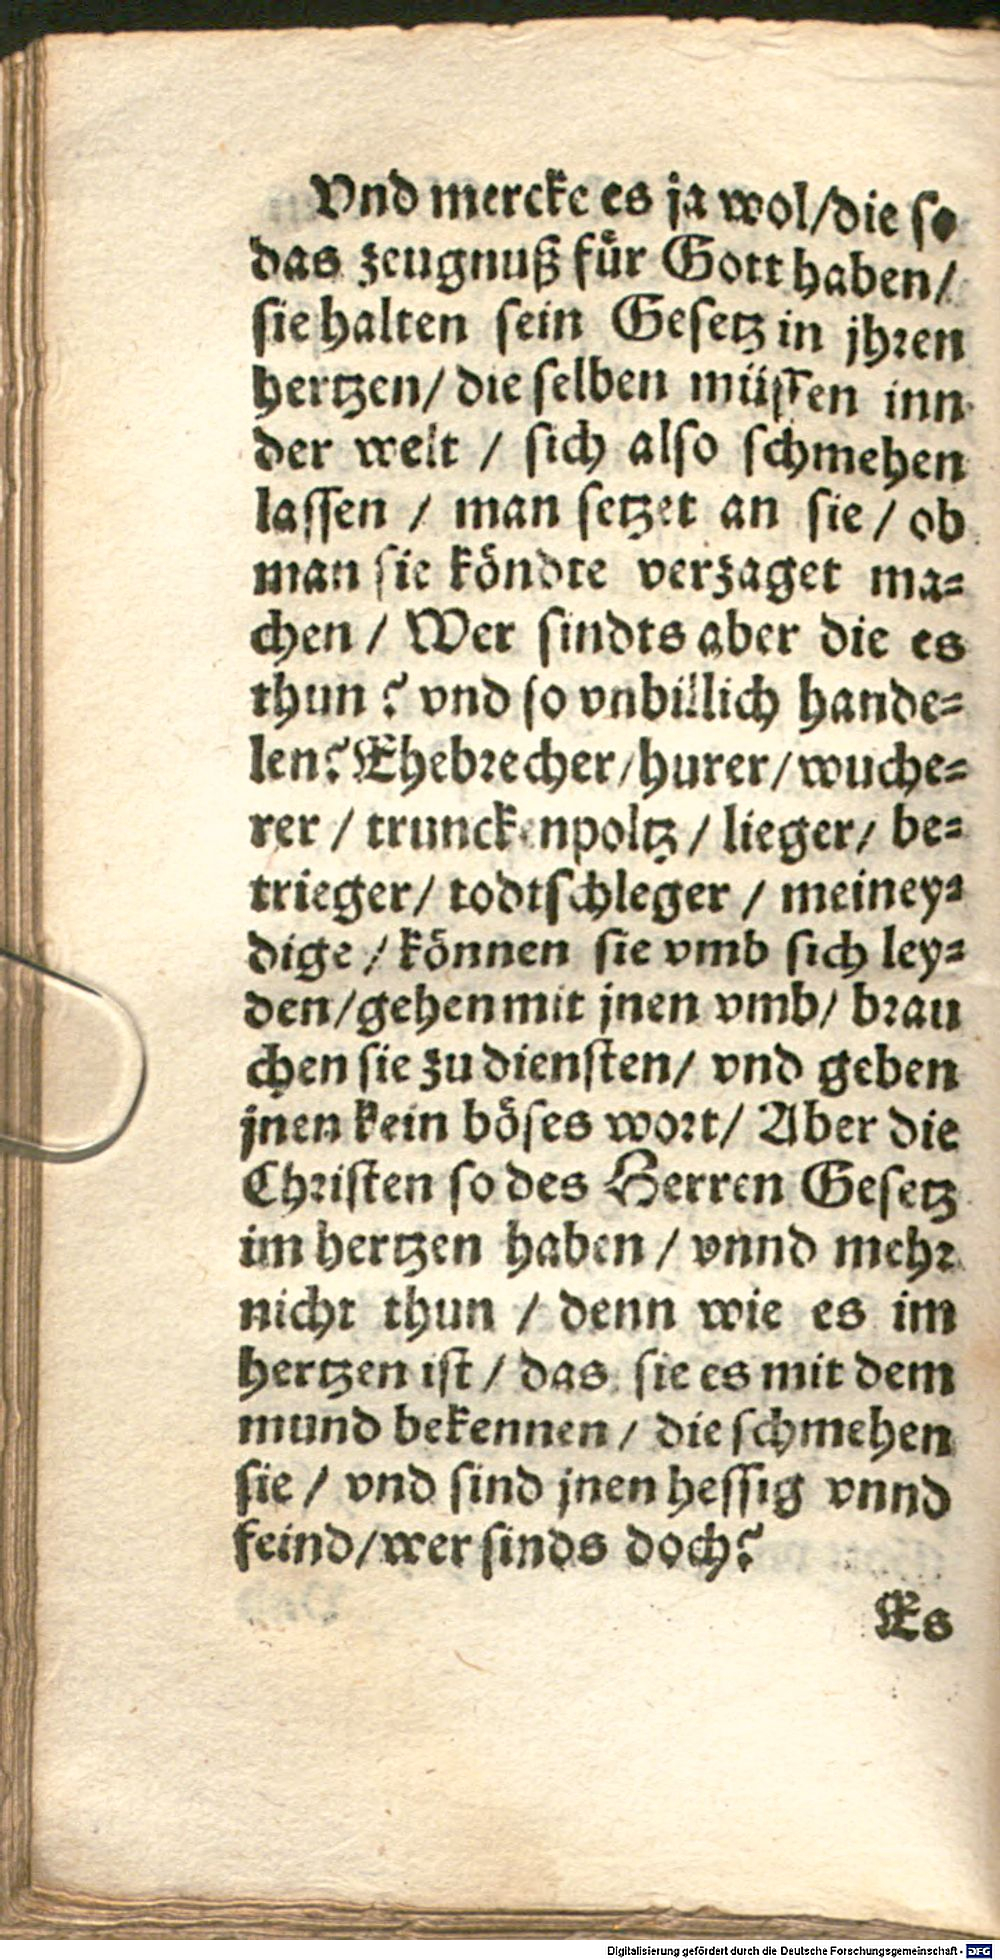 Vnd mercke es ja wol/die so
das zeugnuß fuͤr Gott haben/
sie halten sein Gesetz in jhren
hertzen/ die selben müssen inn
der welt / sich also schmehen
lassen / man setzet an sie / ob
man sie koͤndte verzaget ma=
chen / Wer sindts aber die es
thun? vnd so vnbillich hande=
len? Ehebrecher/hurer/wuche=
rer / trunckenpoltz / lieger/ be=
trieger/ todtschleger / meiney=
dige / koͤnnen sie vmb sich ley=
den/gehen mit jnen vmb/ brau
chen sie zu diensten/ vnd geben
jnen kein boͤses wort/ Aber die
Christen so des Herren Gesetz
im hertzen haben / vnnd mehr
nicht thun / denn wie es im
hertzen ist / das sie es mit dem
mund bekennen / die schmehen
sie / vnd sind jnen hessig vnnd
feind/wer sinds doch?
Es
Digitalisierung gefördert durch die Deutsche Forschungsgemeinschaft - DFG